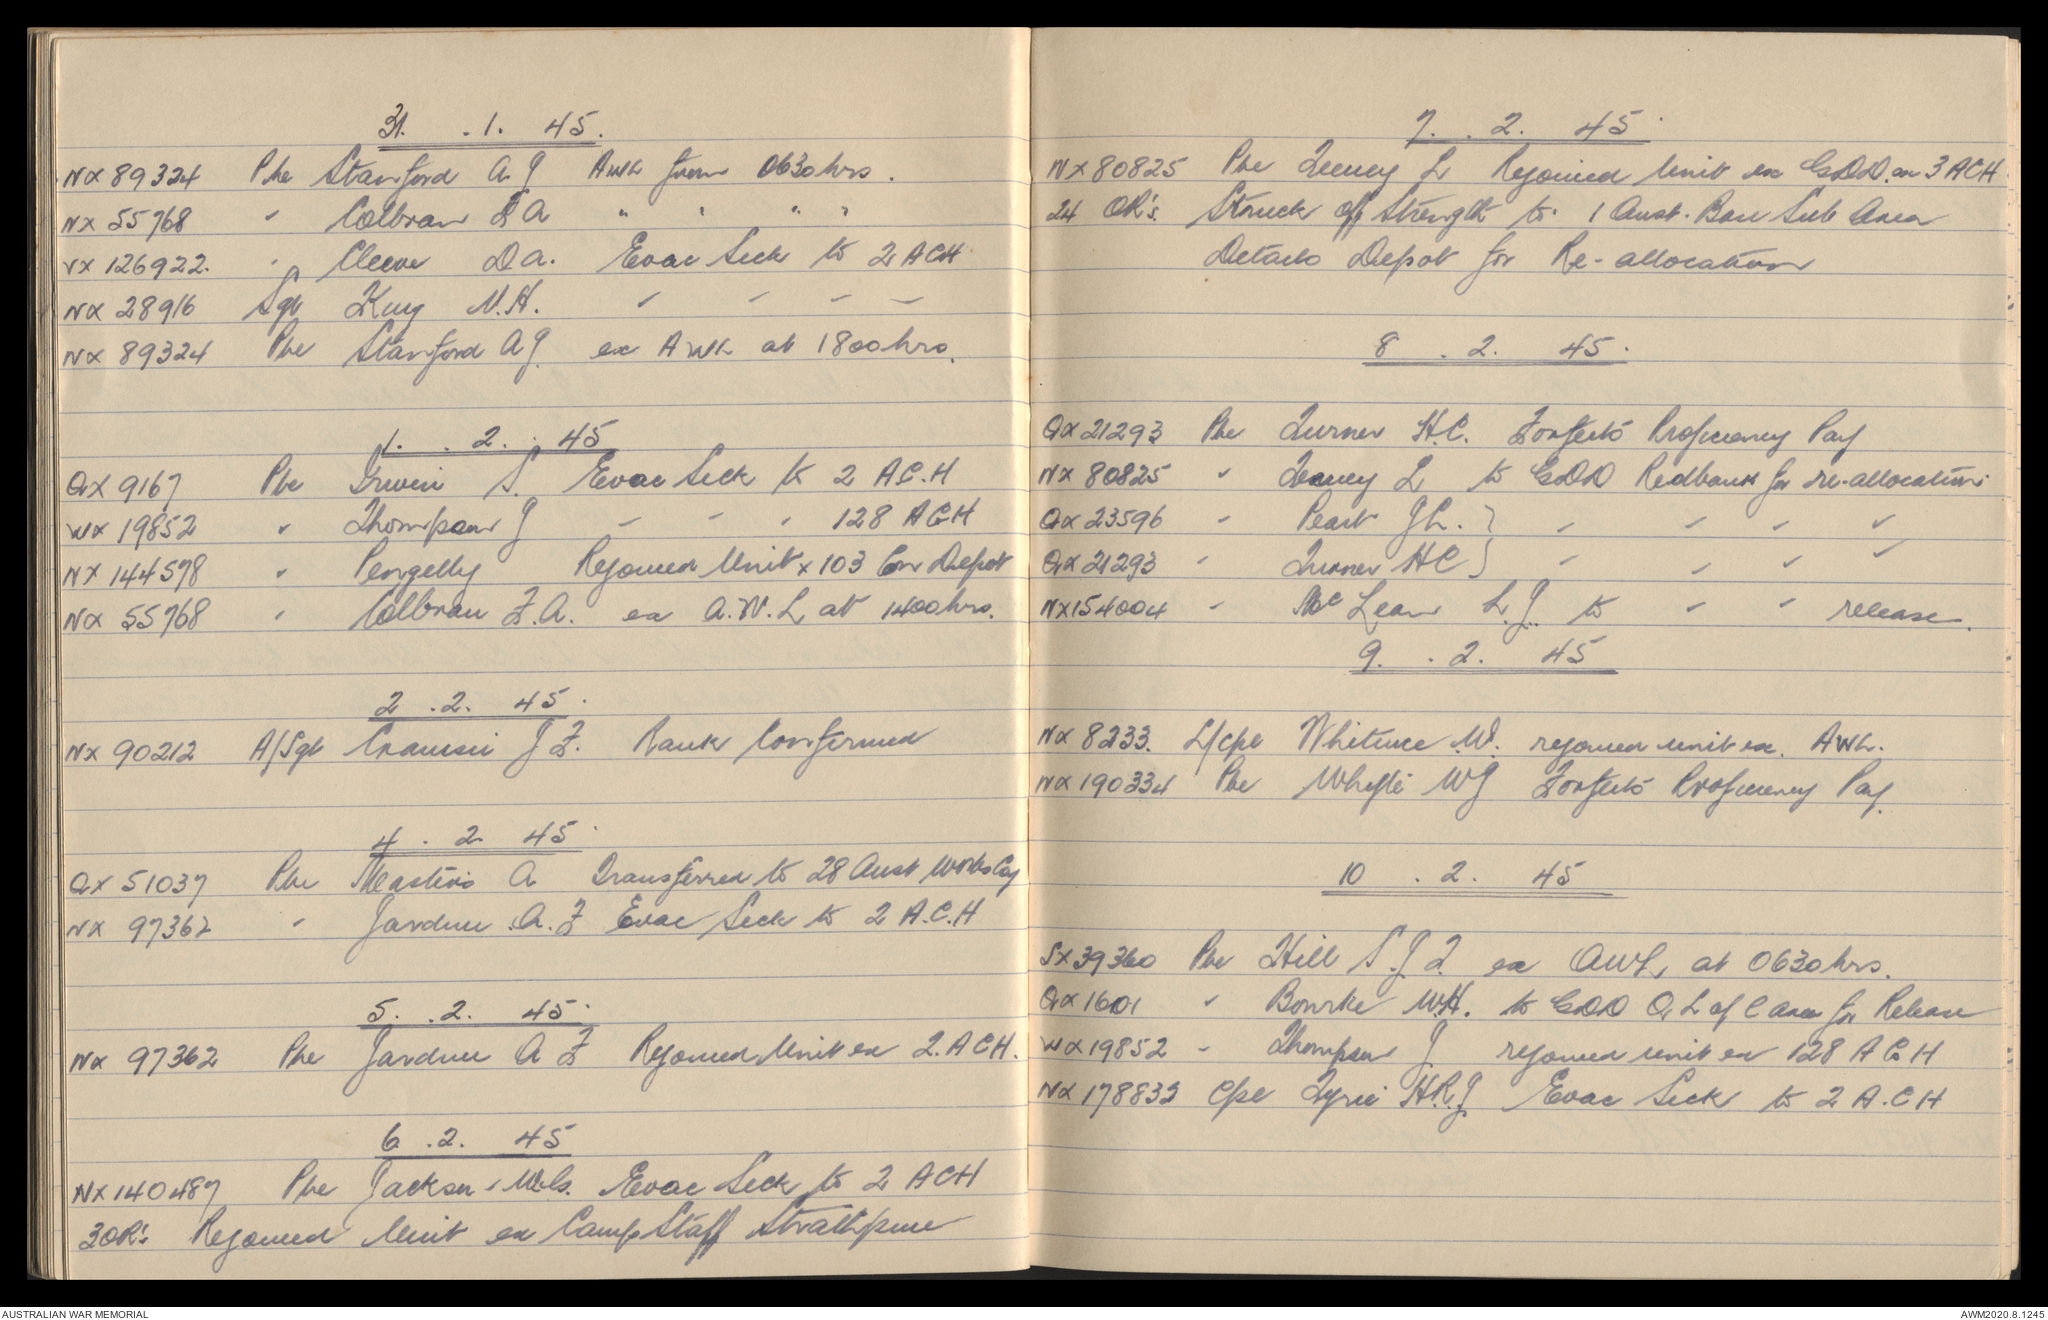 31. . 1. 45.
NX 89324 Pte Stanford A. J AWL from 0630 hrs.
NX 55768 " Colbran F A " " " "
VX 126922. " Cleeve D A. Evac Sick to 2 ACH
NX 28916 Sgt King N.H. " " " "
NX 89324 Pte Stanford A J ex AWL at 1800 hrs.
1. . 2. . 45
QX 9167 Pte Irwin S. Evac Sick to 2 A.C.H
WX 19852 " Thompson J " " " 128 AGH
NX 144578 " Pengelly Rejoined Unit x 103 Con Depot
NX 55768 " Colbran F.A. ex A.W.L at 1400 hrs.
2 . 2. 45.
NX 90212 A/Sgt J F. Rank Confirmed
4 . 2 45.
QX 51037 Pte Masters A Transferred to 28 Aust Works Coy
NX 97362 " Jardine A. F Evac Sick to 2 A.C.H
5. . 2. 45.
NX 97362 Pte Jardine A F Rejoined Unit ex 2. A C H.
6 . 2. 45
NX 140487 Pte Jackson Evac Sick to 2 ACH
3 OR's Rejoined Unit ex Camp Staff Strathpine
7. . 2. 45.
NX 80825 Pte Feeney L Rejoined Unit ex GDD. ex 3 ACH
24 OR's. Struck off Strength to 1 Aust. Base Sub Area
Details Depot for Re-allocation
8 . 2. 45.
QX 21293 Pte Turner H.C. Forfeits Proficiency Pay
NX 80825 " Feeney L to GDD Redbank for re-allocation.
QX 23596 " Peart J L. } " " " "
QX 21293 " Turner H C } " " " "
NX 154004 " McLean L.J. to " " release.
9. . 2. 45
NX 8233. L/Cpl W. rejoined unit ex. AWL.
NX 190334 Pte W J Forfeits Proficiency Pay.
10 . 2. 45
SX 39360 Pte Hill S. J. F. ex AWL, at 0630 hrs.
QX 1601 " Bourke W.H. to GDD Q L of C Area for Release
WX 19852 " Thompson J rejoined unit ex 128 A G H
NX 178832 Cpl H.R.J Evac Sick to 2 A.C.H
AUSTRALIAN WAR MEMORIAL
AWM2020.8.1245